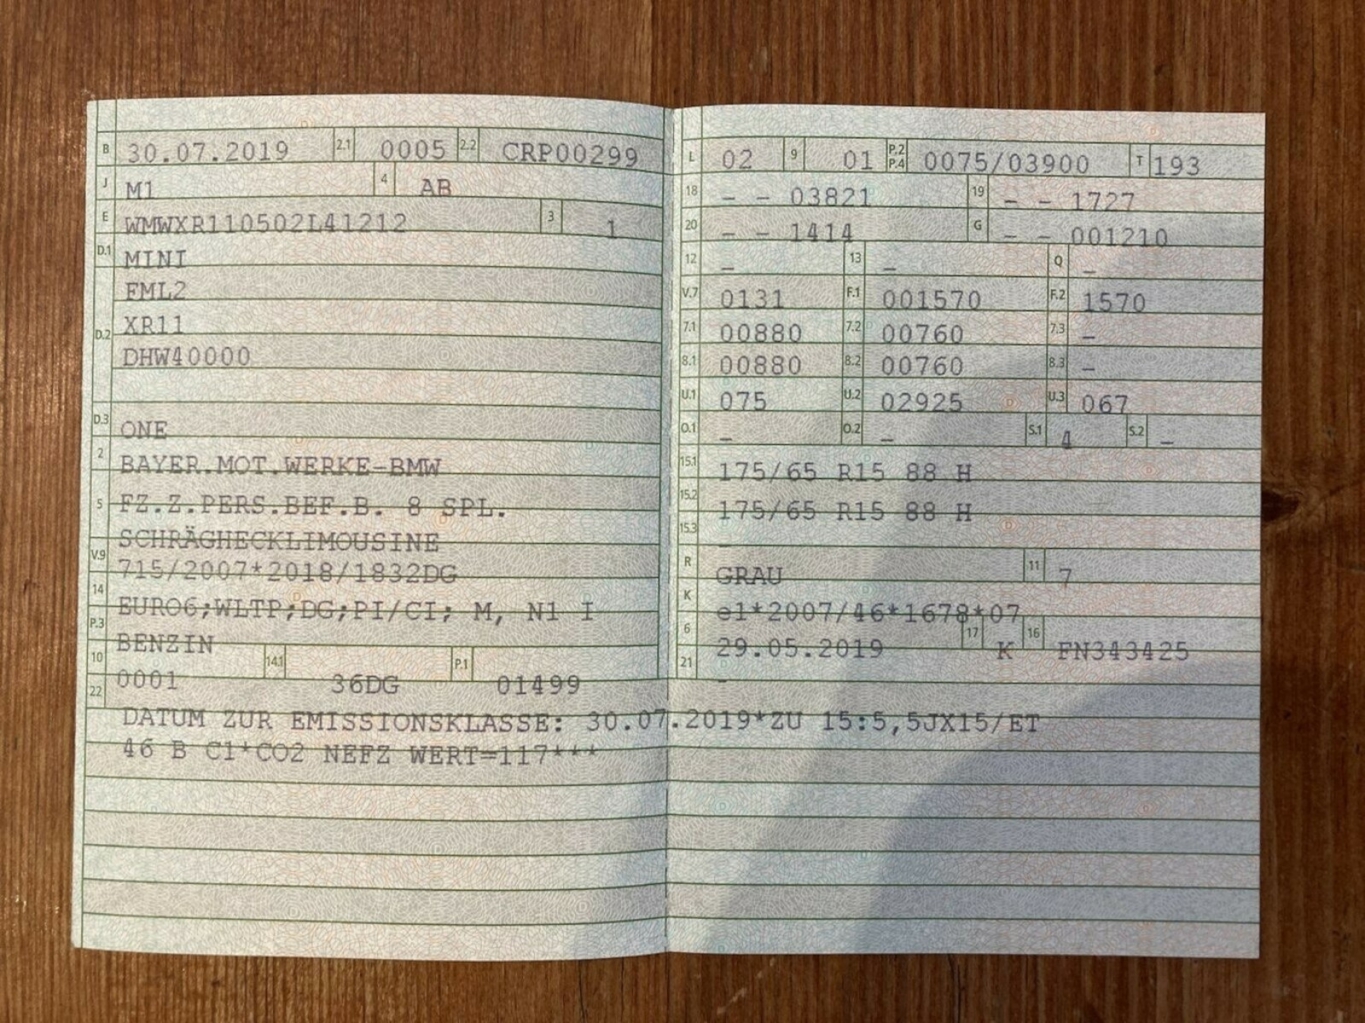 B 30.07.2019 2.1 0005 2.2 CRP00299
J M1 4 AB
E WMWXR110502L41212 3 1
D.1 MINI
FML2
D.2 XR11
DHW40000
D.3 ONE
2 BAYER.MOT.WERKE-BMW
5 FZ.Z.PERS.BEF.B. 8 SPL.
SCHRÄGHECKLIMOUSINE
V.9 715/2007*2018/1832DG
14 EURO6;WLTP;DG;PI/CI; M, N1 I
P.3 BENZIN
10 0001 14.1 36DG P.1 01499
L 02 9 01 P.2 P.4 0075/03900 T 193
18 - - 03821 19 - - 1727
20 - - 1414 G - - 001210
12 - 13 - Q -
V.7 0131 F.1 001570 F.2 1570
7.1 00880 7.2 00760 7.3 -
8.1 00880 8.2 00760 8.3 -
U.1 075 U.2 02925 U.3 067
O.1 - O.2 - S.1 4 S.2 -
15.1 175/65 R15 88 H
15.2 175/65 R15 88 H
15.3 -
R GRAU 11 7
K e1*2007/46*1678*07
6 29.05.2019 17 K 16 FN343425
21 -
22 DATUM ZUR EMISSIONSKLASSE: 30.07.2019*ZU 15:5,5JX15/ET
46 B C1*CO2 NEFZ WERT=117***